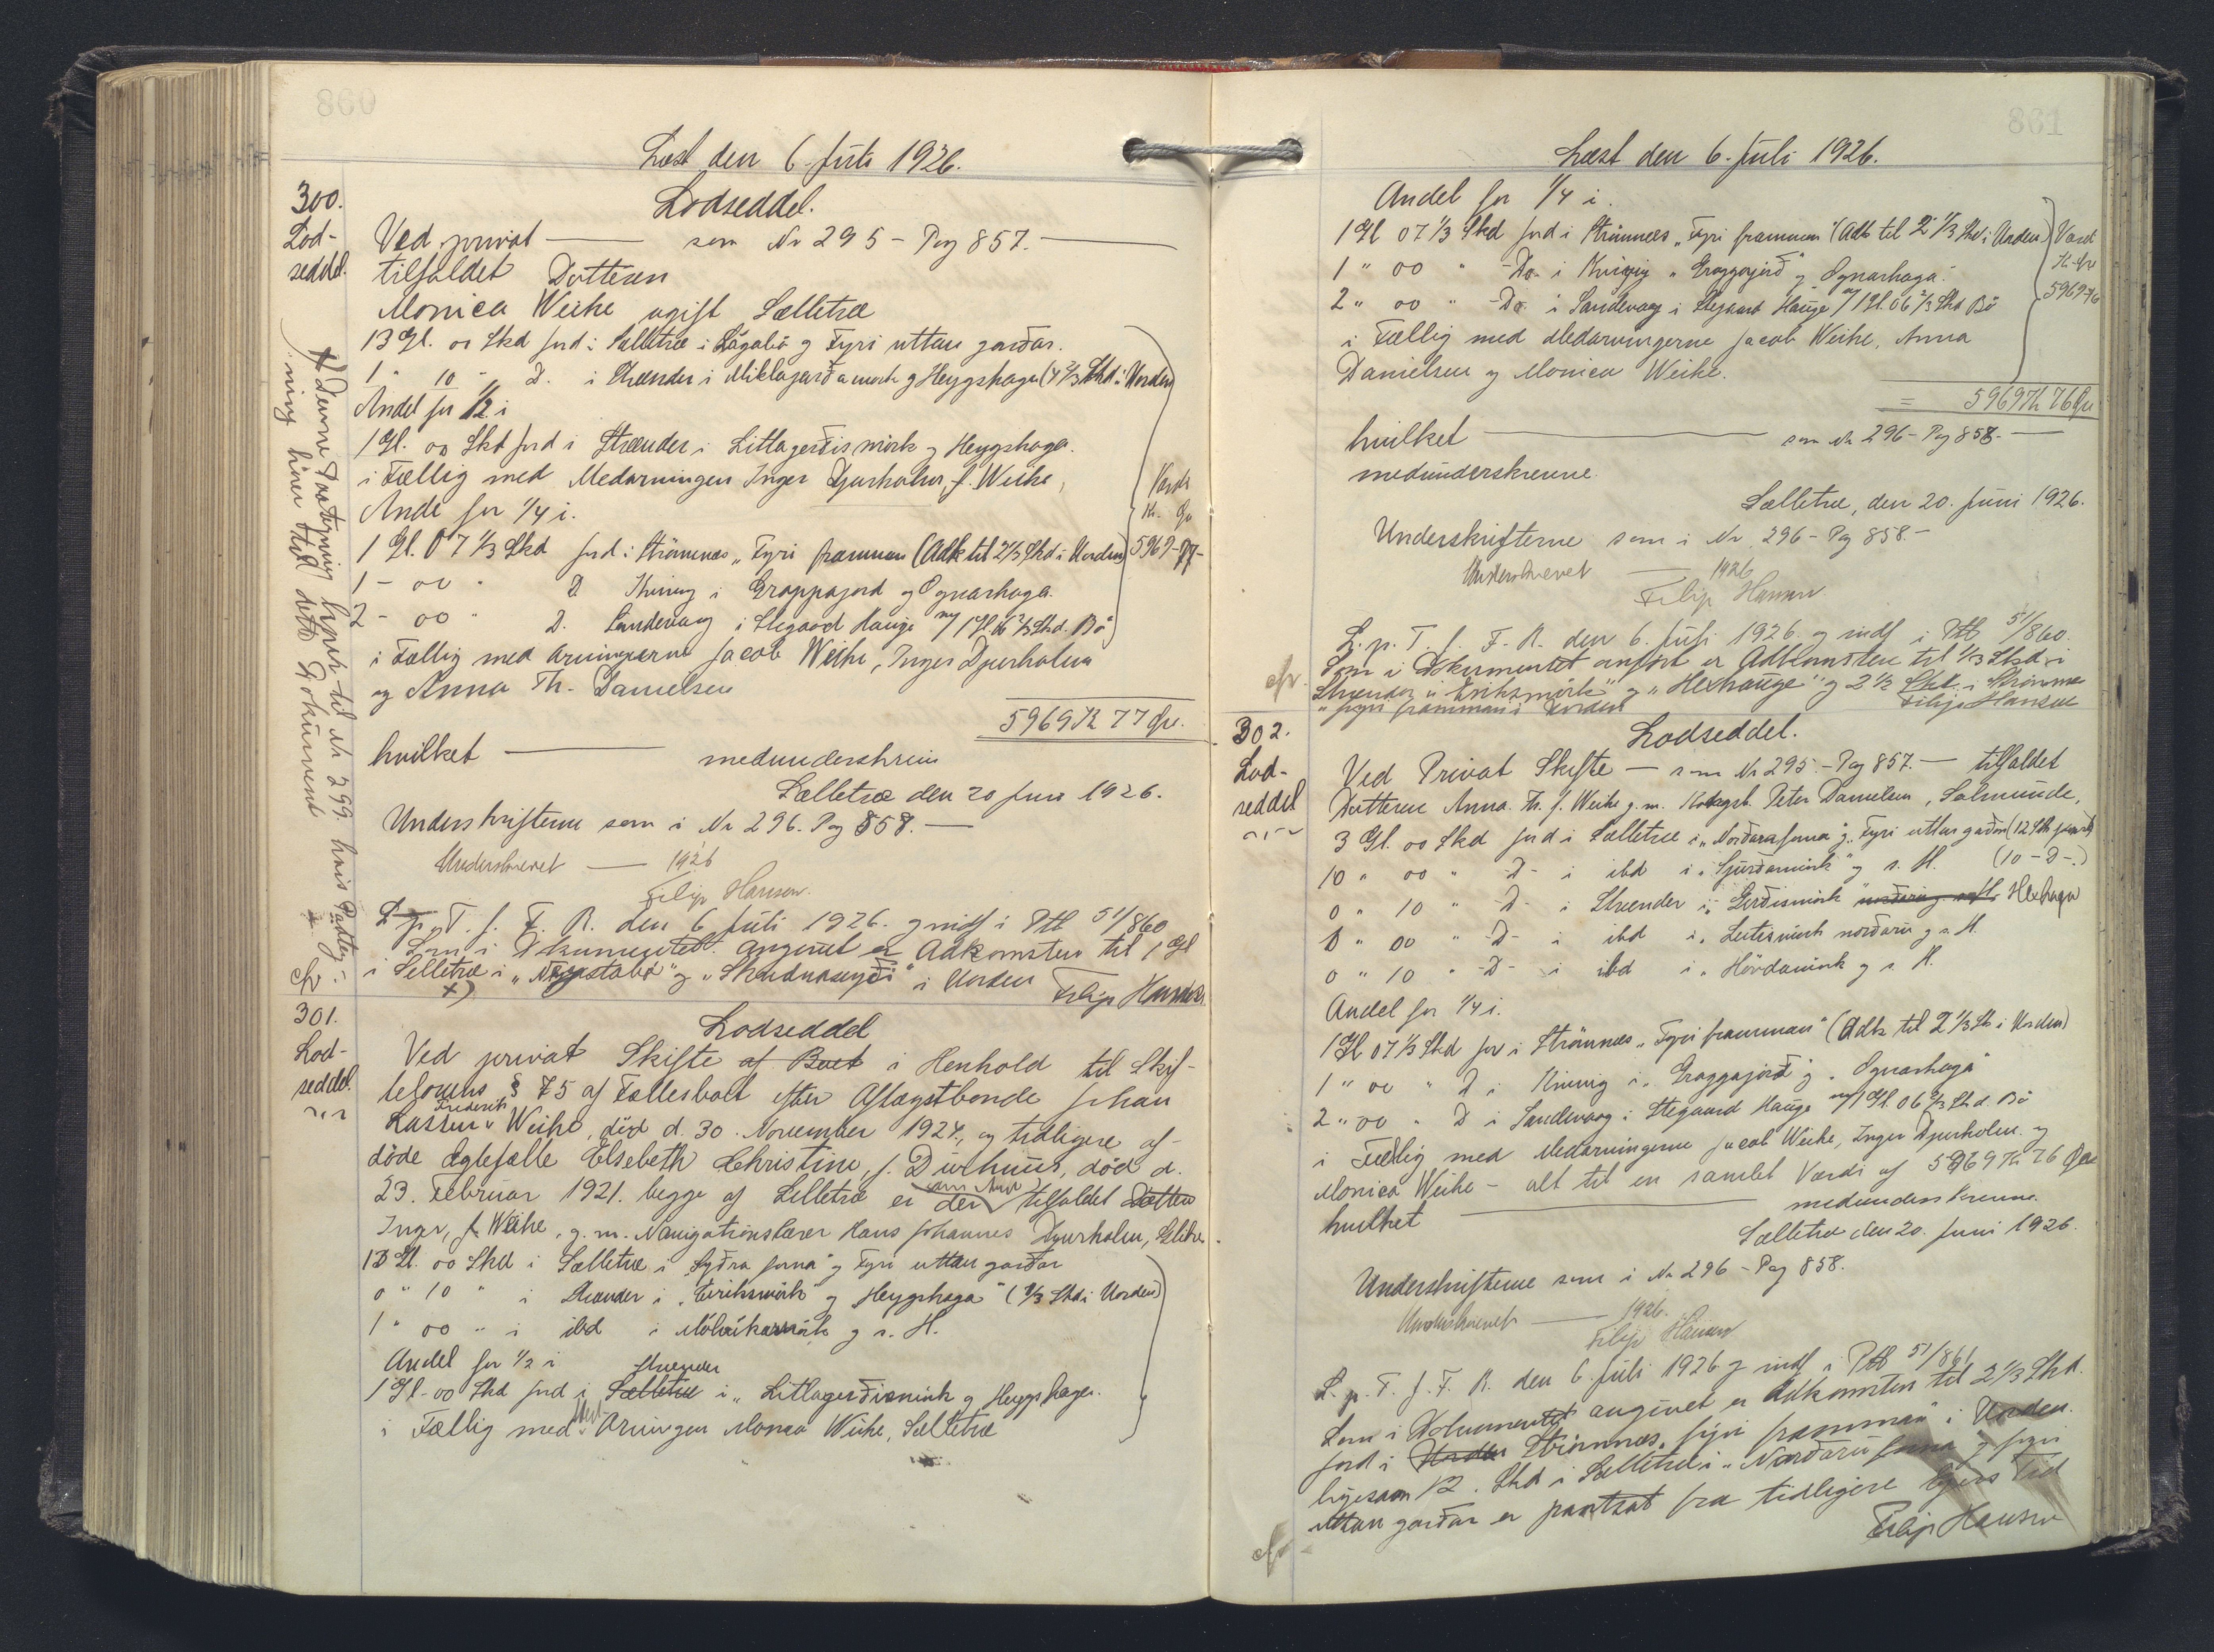 860
Læst den 6. Juli 1926.
300.
Lod-
seddel.
Lodseddel.
Ved privat — som Nr 295 - Pag 857. —
tilfaldet Datteren
Monica Weihe ugift Sælletræ
13 Gl. 00 Skd Jord i Sælletræ i Lágabø og Fyri uttan garðar.
1 " 10 " D. i Strænder i Miklagarðamørk og Heygshaga (4 2/3 Skd i Uorden)
Andel for 1/2 i
1 Gl. 00 Skd Jord i Strænder i Litlagerðismørk og Heygshaga.
i Fællig med Medarvingen Inger Djurholm, f. Weihe,
Andel for 1/4 i.
1 Gl. 07 1/3 Skd Jord i Strømnæs "Fyri framman (Adk til 2 1/3 Skd i Uorden)
1 - 00 " D Kvivig i Grappajord og Ognarhaga.
2 - 00 " D. Sandevaag i Stegaard Hauge m/ 1 Gl. 06 2/3 Skd. Bø
Værdi
Kr. Øre
5969-77-
i Fællig med Arvingerne Jacob Weihe, Inger Djurholm
og Anna Th. Danielsen
5969 Kr 77 Øre.
hvilket — medunderskriv
Sælletræ den 20 Juni 1926.
Underskrifterne som i Nr 296. Pag 858. —
Underskrevet — 1926
Filip Hansen.
L. p. T. f. F. R. den 6 Juli 1926. og indf i Ptb 51/860
Som i Dokumentet angivet er Adkomsten til 1 Gl
i Selletræ i " " og " " i Uorden Filip Hansen
x)
x) Denne Paategning hører til Nr 299. hvis Paateg-
ning hører til dette Dokument
cfr.
301.
Lod-
seddel.
Lodseddel
Ved privat Skifte af Boet i Henhold til Skif-
telovens § 75 af Fællesbolt efter Aftægtsbonde Johan
Lassen Frederik Weihe, død d. 30. November 1924, og tidligere af-
døde Ægtefælle Elsebeth Christine, f. Durhuus, død d.
23. Februar 1921. begge af Selletræ er der som Arv tilfaldet Datter
Inger, f. Weihe, g. m. Navigationslærer Hans Johannes Djurholm, Glibre.
13 Gl. 00 Skd i Sælletræ i "Syðra Jorna" og Fyri uttan garðar
0 " 10 " i Strænder i "Eiriksmørk" og Heygshaga" (1/3 Skd i Uorden)
1 " 00 " i ibd i Móhrikamørk og s. H.
Andel for 1/2 i
1 Gl - 00 Skd Jord i Sælletræ Strænder i "Litlagerðismørk og Heygshaga.
i Fællig med Med Arvingen Monica Weihe, Sælletræ
861
Læst den 6. Juli 1926.
Andel for 1/4 i.
1 Gl 07 1/3 Skd Jord i Strømnæs "Fyri framman" (Adk til 2 1/3 Skd i Uorden)
1 " 00 " - Do - i Kvivig "Grappajord" og Ognarhaga.
2 " 00 " - Do - i Sandevaag i Stegaard Hauge m/ 1 Gl. 06 2/3 Skd Bø
Værdi
Kr. Øre
5969-76
i Fællig med Medarvingerne Jacob Weihe, Anna
Danielsen og Monica Weihe.
= 5969 Kr 76 Øre
hvilket — som Nr 296 - Pag 858. —
medunderskrevne.
Sælletræ, den 20. Juni 1926.
Underskrifterne som i Nr. 296 - Pag 858. -
Underskrevet — 1926
Filip Hansen.
L. p. T. f. F. R. den 6. Juli 1926. og indf i Ptb 51/860.
Som i Dokumentet anført er Adkomsten til 1/3 Skd i
Strænder i "Eiriksmørk" og "Hexhauge" og 2 1/3 Skd. i Strømnæs
"fyri framman i Uorden Filip Hansen
cfr.
302.
Lod-
seddel
Lodseddel.
Ved Privat Skifte — som Nr 295. - Pag 857. — tilfaldet
Datteren Anna Th. f. Weihe g. m. Kobgsb. Peter Danielsen, Salmunde,
3 Gl. 00 Skd Jord i Sælletræ i "Norðara Jorna" og "Fyri uttan garðar (12 Skd pants)
10 " 00 " - D - i ibd i "Gjurdamørk" og s. H. (10 - D -.)
0 " 10 " - D - i Strænder i "Gerðismørk" Hexhaga
1 " 00 " - D - i ibd i "Leitismørk norðaru og s. H.
0 " 10 " - D - i ibd i "Hórdamørk og s. H.
Andel for 1/4 i.
1 Gl 07 1/3 Skd Jor i Strømnæs "Fyri framman" (Adk til 2 1/3 Sk i Uorden)
1 " 00 " D i Kvivig i "Grappajord" og "Ognarhaga"
2 " 00 " D i Sandevaag i Stegaard Hauge m/ 1 Gl. 06 2/3 Skd. Bø
i Fællig med Medarvingerne Jacob Weihe, Inger Djurholm. og
Monica Weihe - alt til en samlet Værdi af 5969 Kr 76 Øre
hvilket — medunderskrevne.
Sælletræ den 20. Juni 1926.
Underskrifterne som i Nr 296 - Pag 858.
Underskrevet — 1926.
Filip Hansen
L. p. T. f. F. R. den 6. Juli 1926 og indf i Ptb 51/861
Som i Dokumentet angivet er Adkomsten til 2 1/3 Skd.
Jord i Uorden Strømnæs, fyri framman" i Uorden.
ligesom 12. Skd i Sælletræ i "Norðaru Jorna og fyri
uttan garðar er pantsat fra tidligere Ejers Tid
Filip Hansen
cfr.